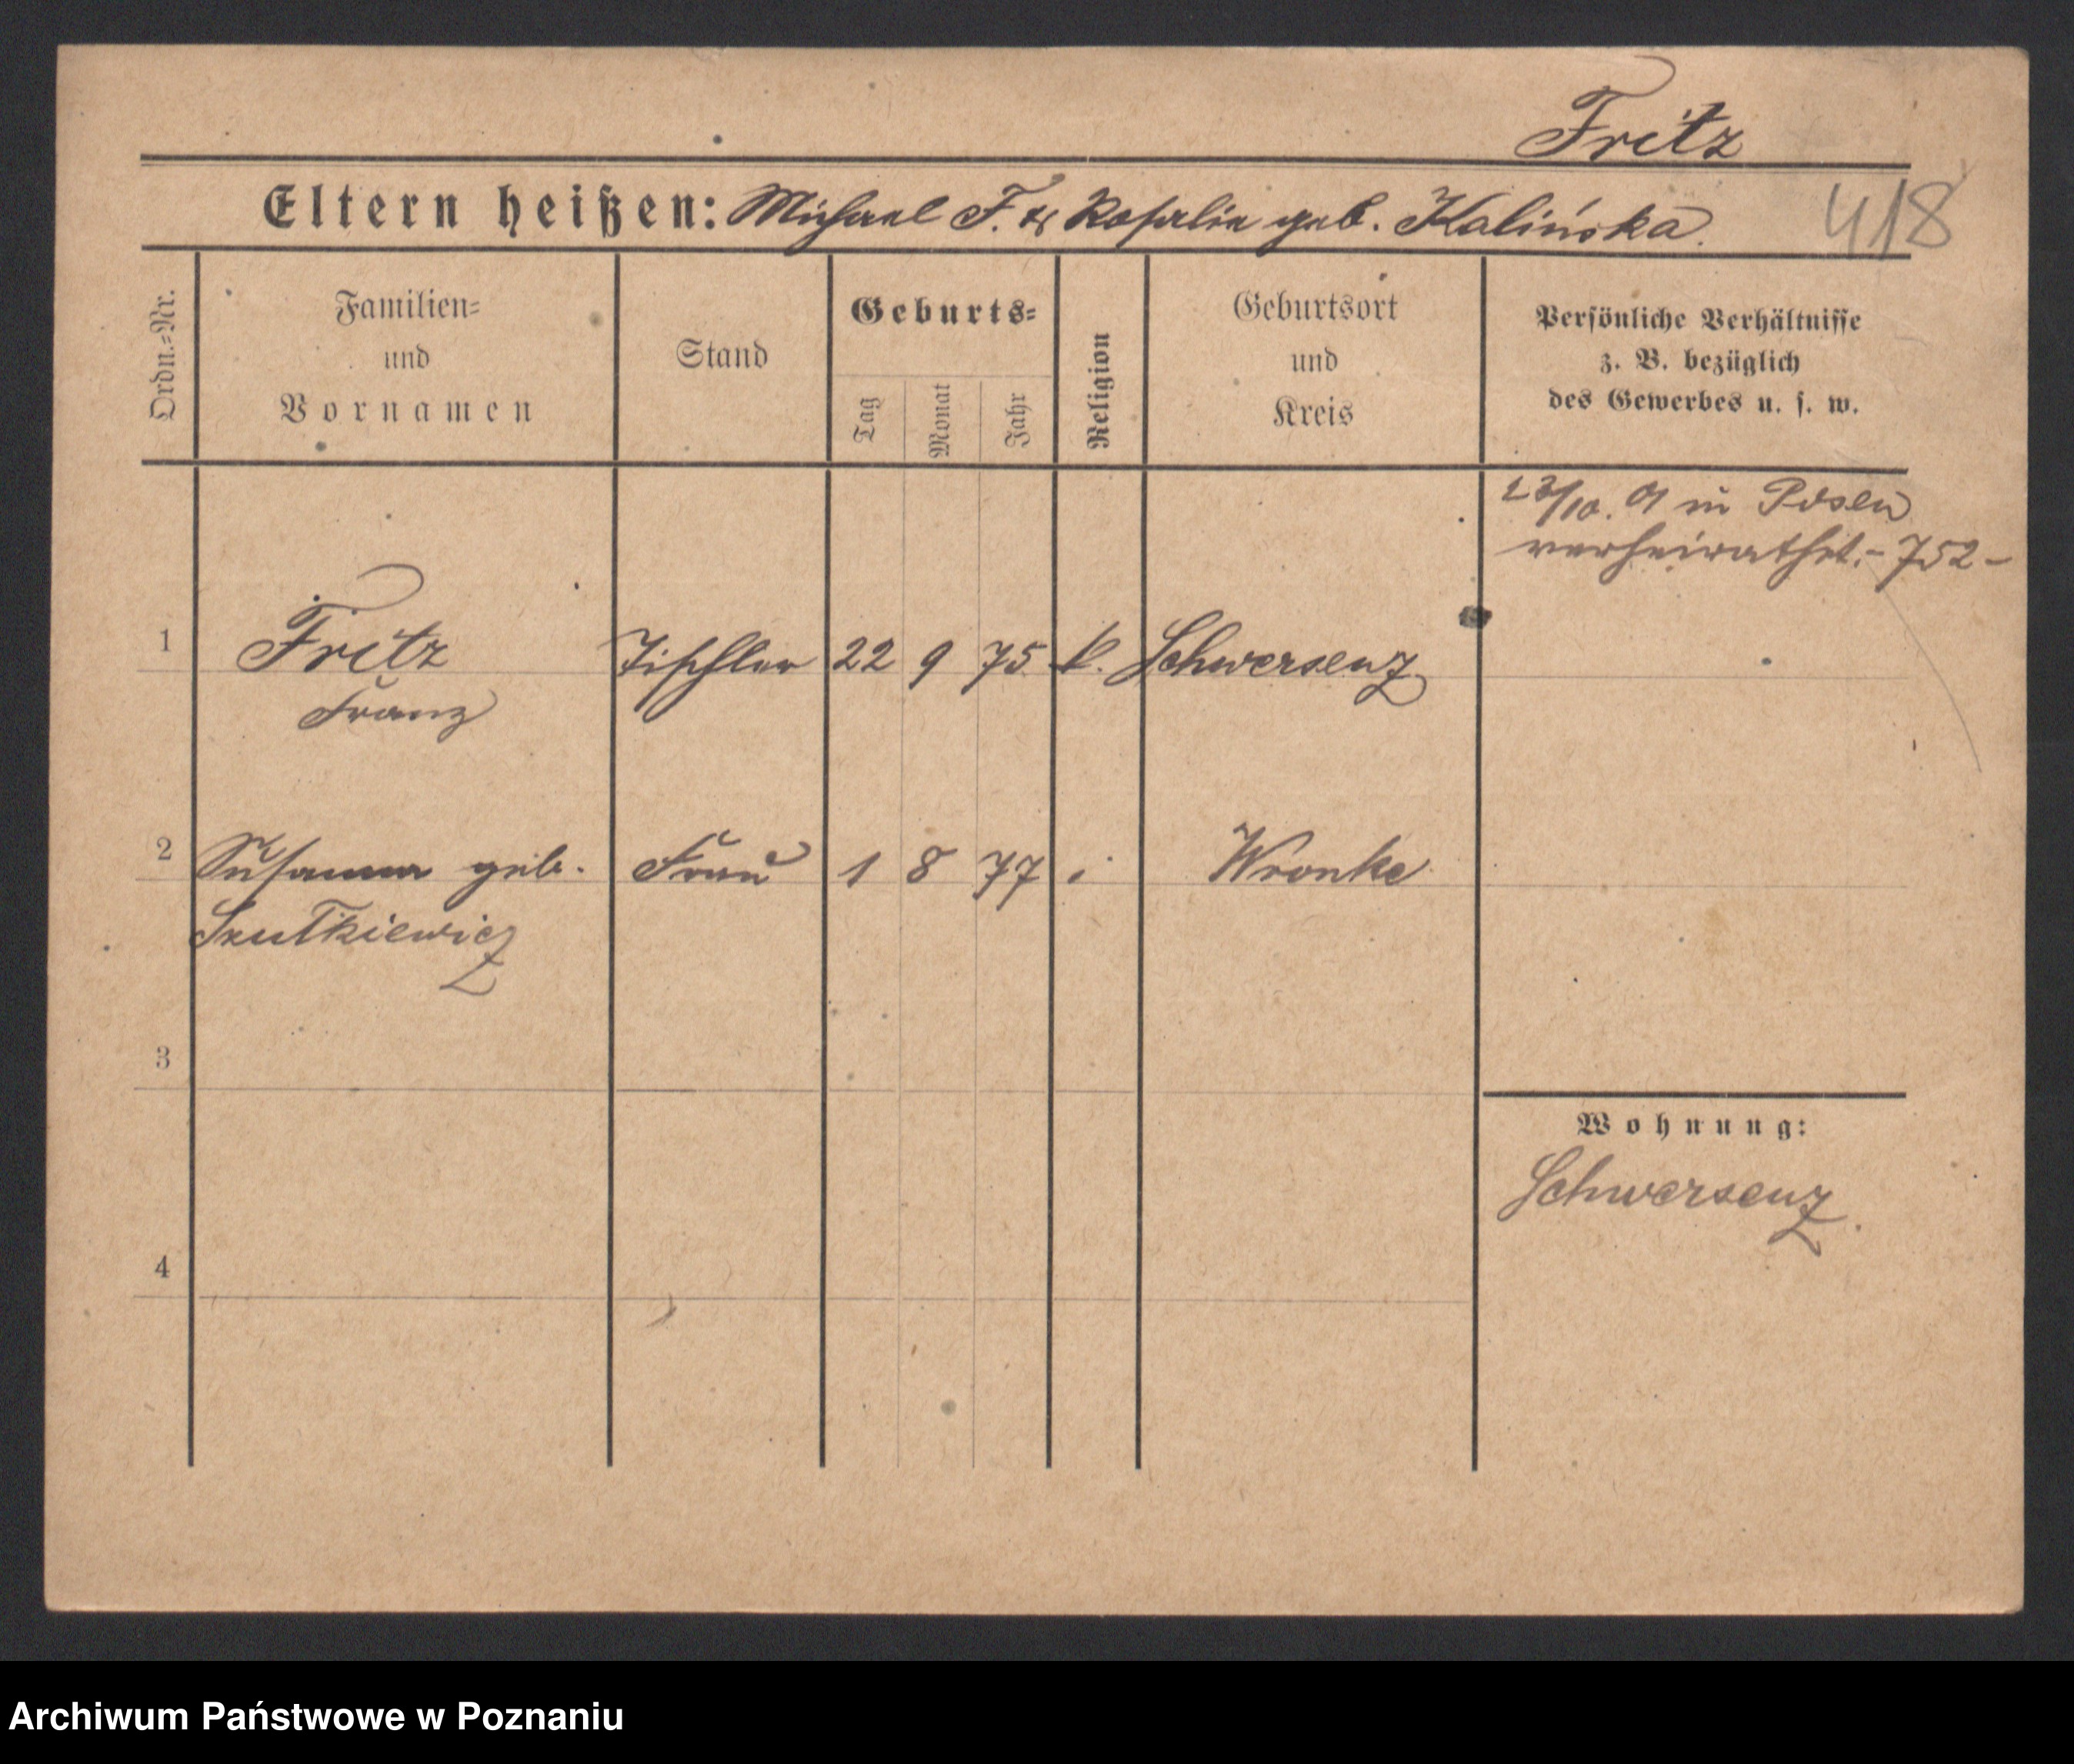 Fritz
Eltern heißen: Michael F. & Rosalia geb. Kalińska.
418
Ordn.-Nr.
Familien-
und
Vornamen
Stand
Geburts-
Tag
Monat
Jahr
Religion
Geburtsort
und
Kreis
Persönliche Verhältnisse
z. B. bezüglich
des Gewerbes u. s. w.
23/10. 01 in Posen
verheirathet. - 752 -
1 Fritz Tischler 22 9 75 k. Schwersenz
Franz
2 Susanna geb. Frau 1 8 77 Wronke
Skutkiewicz
3
Wohnung:
Schwersenz.
4
Archiwum Państwowe w Poznaniu